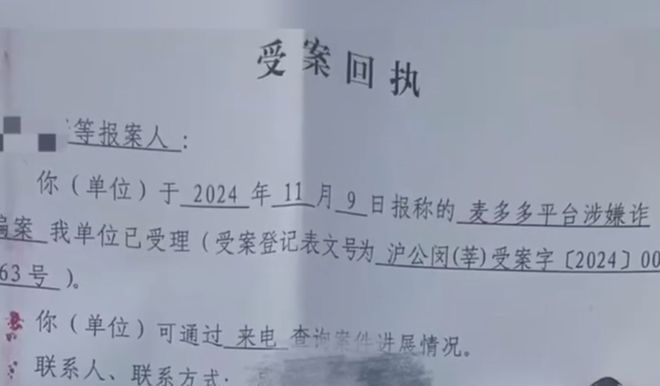 受案回执
等报案人：
你（单位）于 2024 年 11 月 9 日报称的 麦多多平台涉嫌诈
骗案 我单位已受理（受案登记表文号为 沪公闵(莘)受案字〔2024〕00
63号 ）。
你（单位）可通过 来电 查询案件进展情况。
联系人、联系方式：